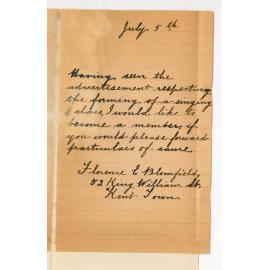 July 5th
Having seen the
advertisement respecting
the forming of a singing
class, I would like to
become a member, if
you would please forward
particulars of same
Florence E Blomfield,
52 King William St.
Kent Town